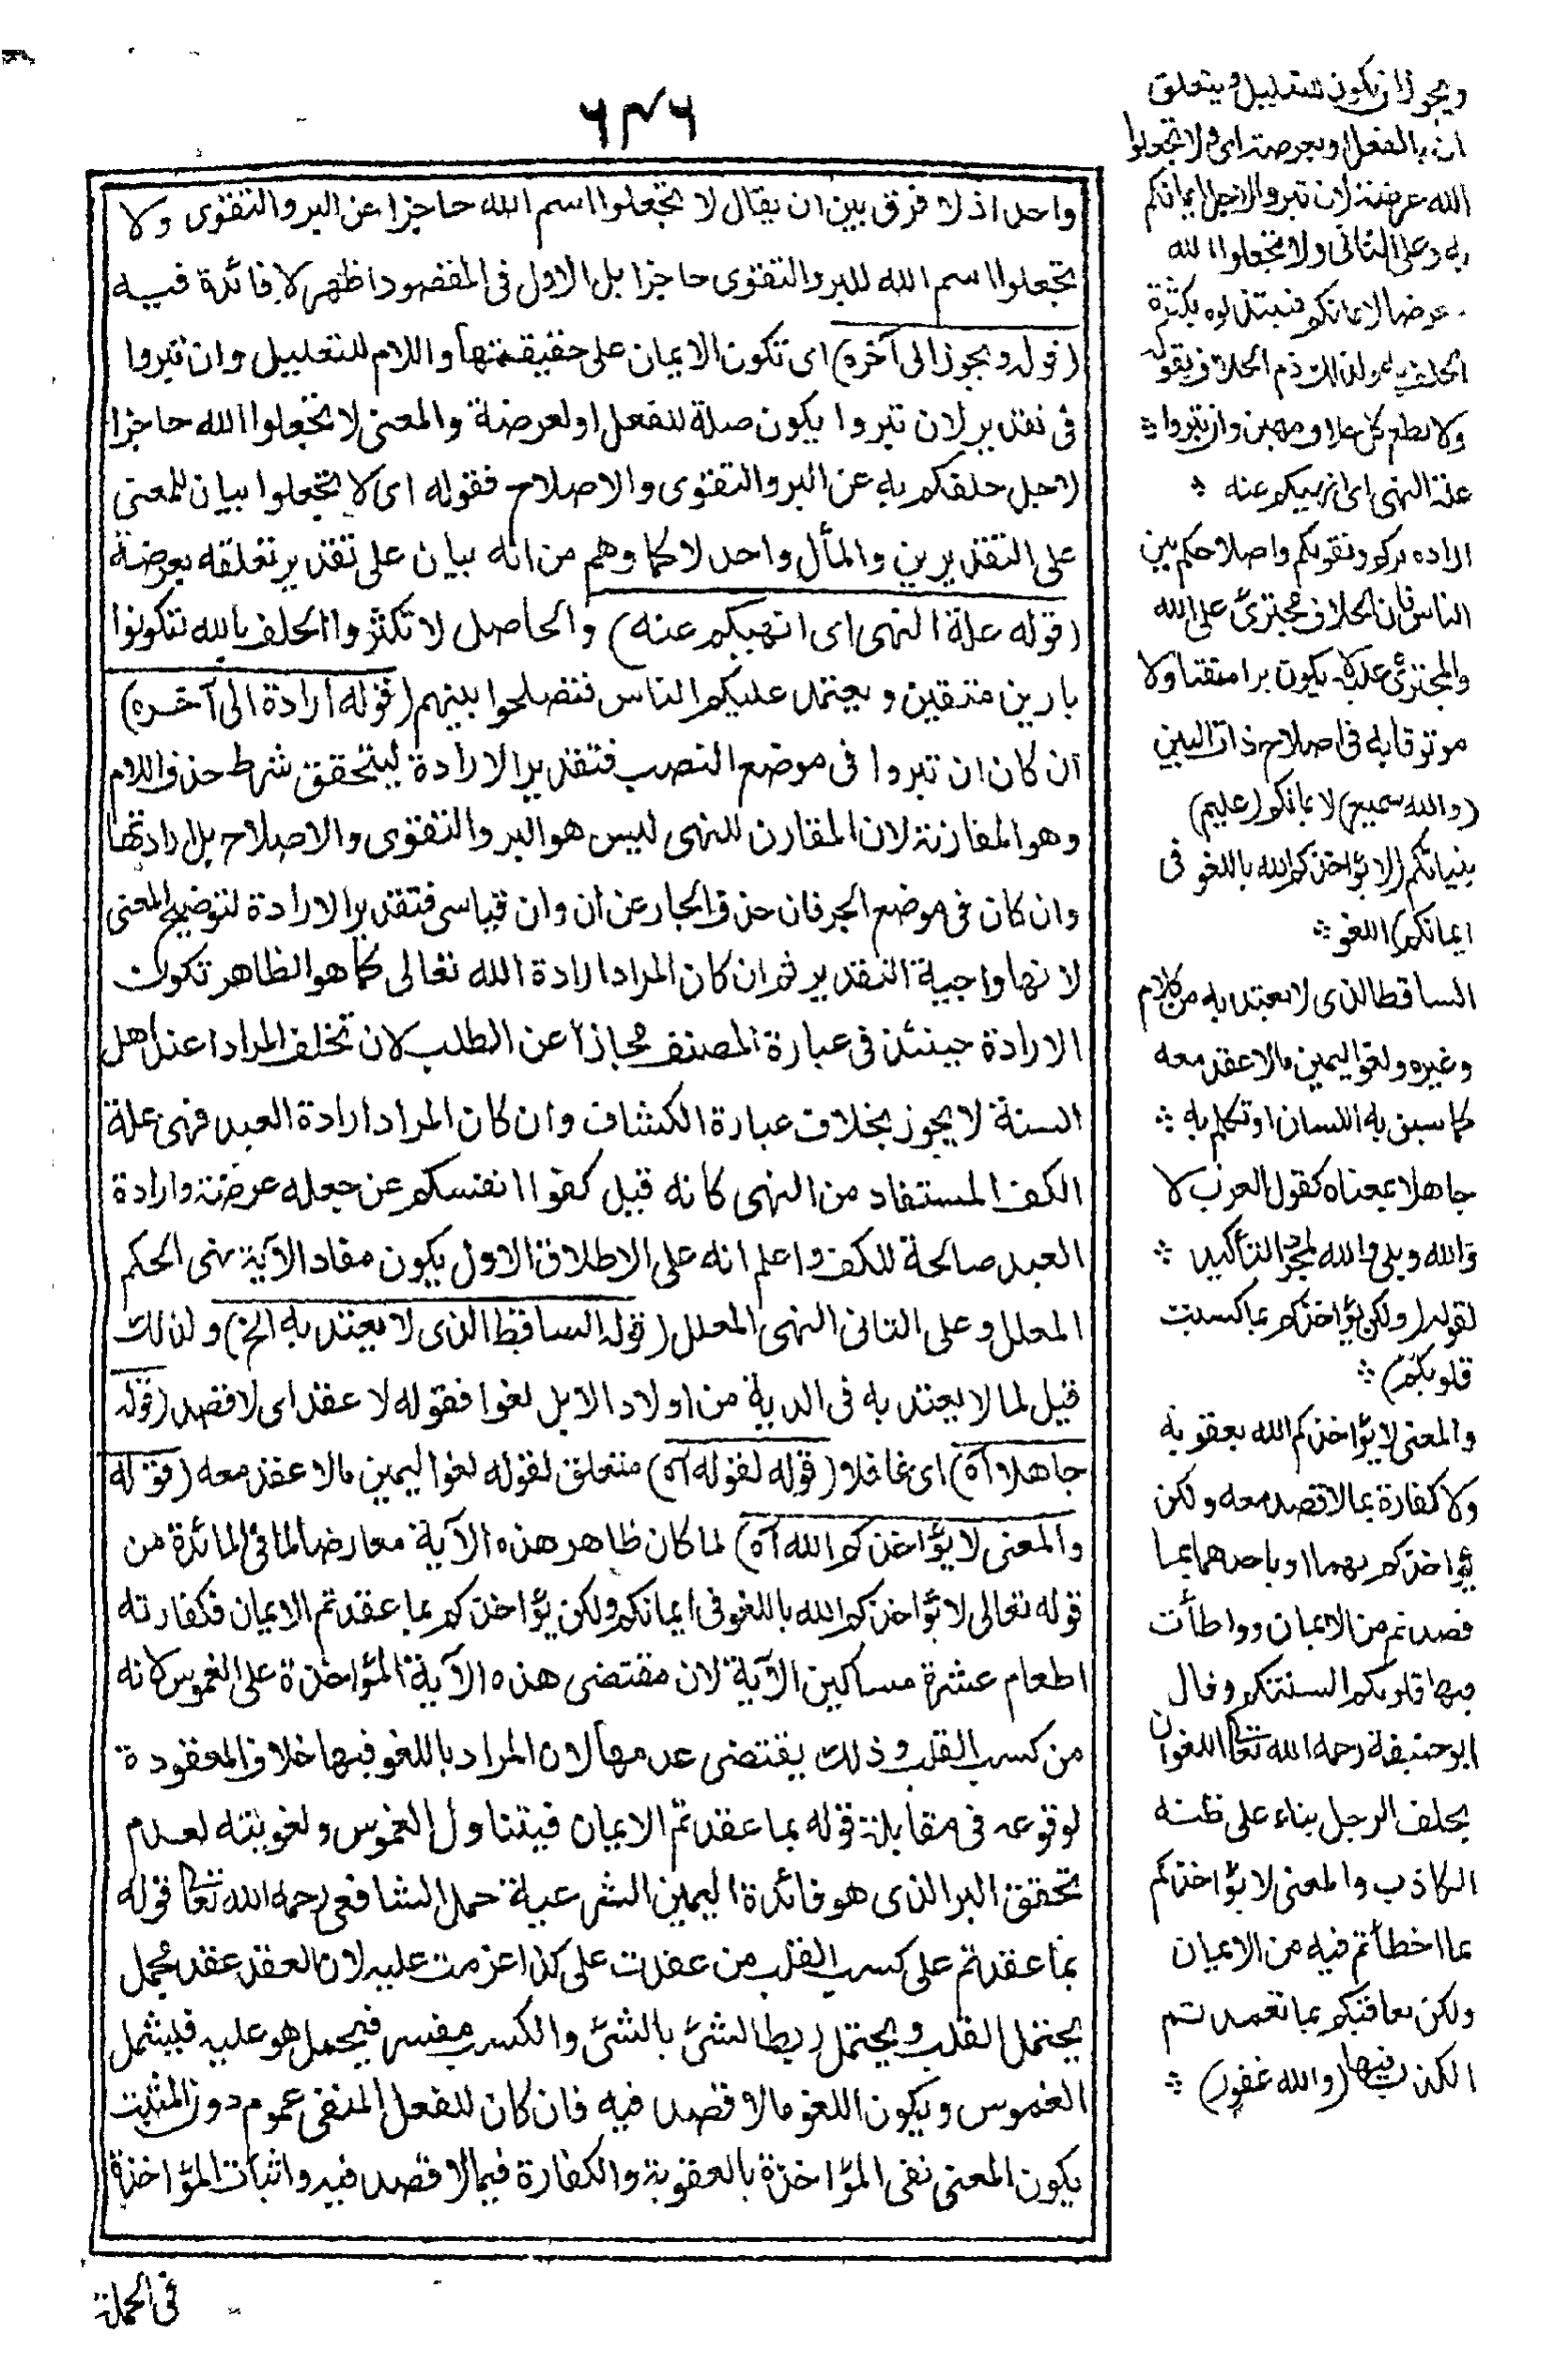 ٦٣٦
واحد اذ لا فرق بين ان يقال لا تجعلوا اسم الله حاجزا عن البر والتقوى ولا
تجعلوا اسم الله للبر والتقوى حاجزا بل الاول فى المقصود اظهر لا فائدة فيه
(قوله ويجوز الى آخره) اى تكون الايمان على حقيقتها واللام للتعليل وان تبروا
فى تقدير لان تبروا يكون صلة للفعل او لعرضة والمعنى لا تجعلوا الله حاجزا
لاجل حلفكم به عن البر والتقوى والاصلاح فقوله اى لا تجعلوا بيان للمعنى
على التقديرين والمأل واحد لا كما وهم من انه بيان على تقدير تعلقه بعرضة
(قوله علة النهى اى انهيكم عنه) والحاصل لا تكثروا الحلف بالله لتكونوا
بارين متقين ويعتمد عليكم الناس فتصلحوا بينهم (قوله ارادة الى آخره)
ان كان ان تبروا فى موضع النصب فتقدير الارادة ليتحقق شرط حذف اللام
وهو المقارنة لان المقارن للنهى ليس هو البر والتقوى والاصلاح بل ارادتها
وان كان فى موضع الجر فان حذف الجار عن أن وان قياسى فتقدير الارادة لتوضيح المعنى
لا نها واجبة التقدير ثم ان كان المراد ارادة الله تعالى كما هو الظاهر تكون
الارادة حينئذ فى عبارة المصنف مجازا عن الطلب لان تخلف المراد عند اهل
السنة لا يجوز بخلاف عبارة الكشاف وان كان المراد ارادة العبد فهى علة
الكف المستفاد من النهى كانه قيل كفوا انفسكم عن جعله عرضة وارادة
العبد صالحة للكف واعلم انه على الاطلاق الاول يكون مفاد الآية نهى الحكم
المعلل وعلى الثانى النهى المعلل (قوله الساقط الذى لا يعتد به الخ) ولذلك
قيل لما لا يعتد به فى الدية من اولاد الابل لغوا فقوله لا عقد اى لا قصد (قوله
جاهلا آه) اى غافلا (قوله لقوله آه) متعلق لقوله لغو اليمين مالا عقد معه (قوله
والمعنى لا يؤاخذكم الله آه) لما كان ظاهر هذه الآية معارضا لما فى المائدة من
قوله تعالى لا يؤاخذكم الله باللغو فى ايمانكم ولكن يؤاخذكم بما عقدتم الايمان فكفارته
اطعام عشرة مساكين الآية لان مقتضى هذه الآية المؤاخذة على الغموس لانه
من كسب القلب وذلك يقتضى عدمها لان المراد باللغو فيها خلاف المعقودة
لوقوعه فى مقابلة قوله بما عقدتم الايمان فيتناول الغموس ولغويته لعدم
تحقق البر الذى هو فائدة اليمين الشرعية حمل الشافعى رحمه الله تعا قوله
بما عقدتم على كسب القلب من عقدت على كذا عزمت عليه لان العقد عقد مجمل
يحتمل القلب ويحتمل ربط الشئ بالشئ والكسب مفسر فيحمل هو عليه فيشمل
الغموس ويكون اللغو مالا قصد فيه فان كان للفعل المنفى عموم دون المثبت
يكون المعنى نفى المؤاخذة بالعقوبة والكفارة فيما لا قصد فيه واثبات المؤاخذة
فى الجملة
ويجوز ان تكون للتعليل ويتعلق
ان بالفعل او بعرضة اى ولا تجعلوا
الله عرضة لان تبروا لاجل ايمانكم
به وعلى الثانى ولا تجعلوا الله
عرضا لايمانكم فتبتذلوه بكثرة
الحلف به ولذلك ذم الحلاف بقوله
ولا تطع كل حلاف مهين وان تبروا
علة النهى اى انهيكم عنه
ارادة بركم وتقويكم واصلاحكم بين
الناس فان الحلاف مجترئ على الله
والمجترئ عليه لا يكون برا متقيا ولا
موثوقا به فى اصلاح ذات البين
(والله سميع) لايمانكم (عليم)
بنياتكم (لا يؤاخذكم الله باللغو فى
ايمانكم) اللغو
الساقط الذى لا يعتد به من كلام
وغيره ولغو اليمين مالا عقد معه
كما سبق به اللسان او تكلم به
جاهلا بمعناه كقول العرب لا
والله وبلى والله لمجرد التأكيد
لقوله (ولكن يؤاخذكم بما كسبت
قلوبكم)
والمعنى لا يؤاخذكم الله بعقوبة
ولا كفارة بما لا قصد معه ولكن
يؤاخذكم بهما او باحدهما بما
قصدتم من الايمان وواطأت
فيها قلوبكم السنتكم وقال
ابو حنيفة رحمه الله تعا اللغو ان
يحلف الرجل بناء على ظنه
الكاذب والمعنى لا يؤاخذكم
بما اخطأتم فيه من الايمان
ولكن يعاقبكم بما تعمدتم
الكذب فيها (والله غفور)